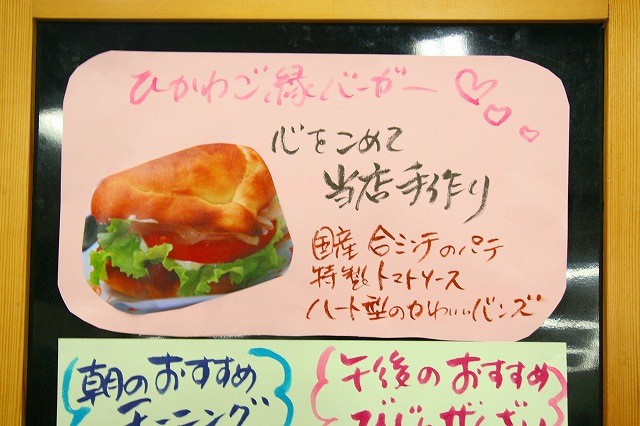 ひかわご縁バーガー
心をこめて
当店手作り
国産 合ミンチのパテ
特製トマトソース
ハート型のかわいいバンズ
朝のおすすめ
モーニング
午後のおすすめ
ぜんざい